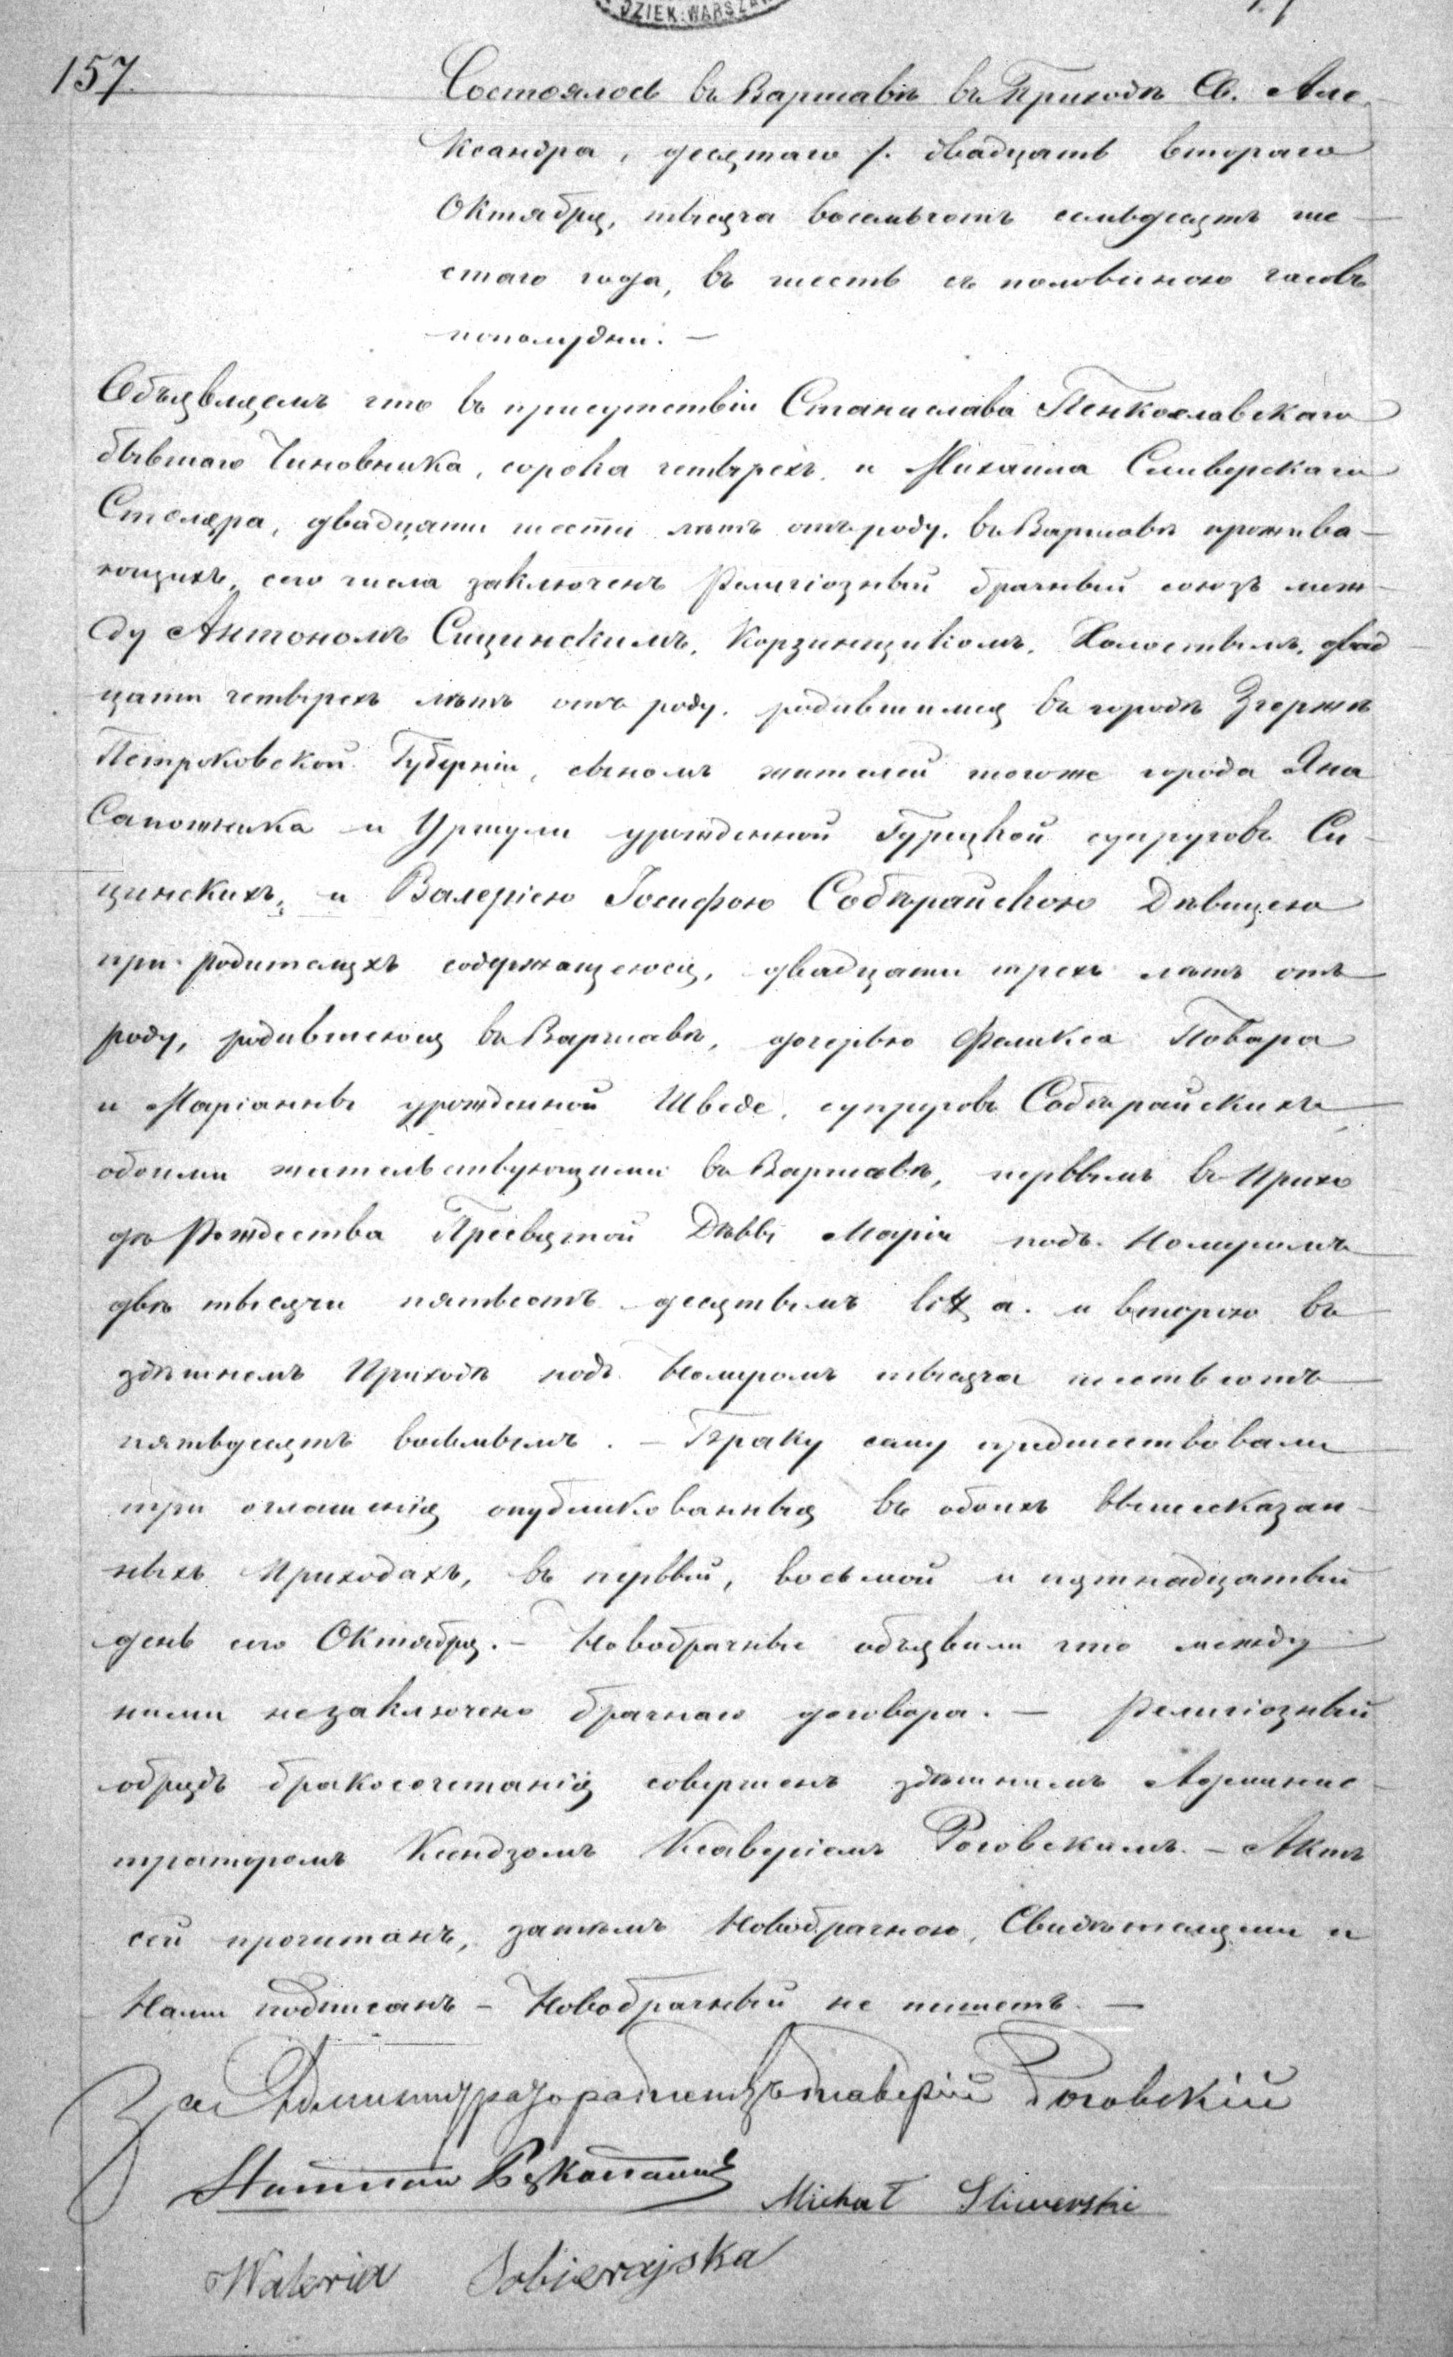 DZIEK. WARSZAW
157.
Состоялось въ Варшавѣ въ Приходѣ Св. Але-
ксандра, десятаго /. двадцать втораго
Октября, тысяча восемьсотъ семьдесятъ ше-
стаго года, въ шесть съ половиною часовъ
пополудни. —
Объявляемъ что въ присутствіи Станислава Пенкославскаго
бывшаго Чиновника, сорока четырехъ, и Михаила Сливерскаго
Столяра, двадцати шести лѣтъ отъ роду, въ Варшавѣ прожива-
ющихъ, сего числа заключенъ Религіозный брачный союзъ меж-
ду Антономъ Сицинскимъ, Корзинщикомъ, Холостымъ, двад-
цати четырехъ лѣтъ отъ роду, родившимся въ городѣ Згержѣ
Петроковской Губерніи, сыномъ жителей тогоже города Яна
Сапожника и Уршули урожденной Гурецкой супруговъ Си-
цинскихъ, и Валеріею Іосифою Собѣрайскою Дѣвицею
при родителяхъ содержащеюся, двадцати трехъ лѣтъ отъ
роду, родившеюся въ Варшавѣ, дочерью Феликса Повара
и Маріанны урожденной Шведе, супруговъ Собѣрайскихъ
обоими жительствующими въ Варшавѣ, первымъ въ Прихо
дѣ Рождества Пресвятой Дѣвы Маріи подъ Номеромъ
двѣ тысячи пятьсотъ десятымъ litt а. и второю въ
здѣшнемъ Приходѣ подъ Номеромъ тысяча шестьсотъ
пятьдесятъ восьмымъ. — Браку сему предшествовали
три оглашенія опубликованныя въ обоихъ вышесказан-
ныхъ Приходахъ, въ первый, восьмой и пятнадцатый
день сего Октября. — Новобрачные объявили что между
ними незаключено брачнаго договора. — Религіозный
обрядъ бракосочетанія совершенъ здѣшнимъ Админис-
траторомъ Ксендзомъ Ксаверіемъ Роговскимъ. — Актъ
сей прочитанъ, затѣмъ Новобрачною, Свидѣтелями и
Нами подписанъ — Новобрачный не пишетъ. —
За Администратора Ксаверій Роговскій
Michał Sliwerski
Waleria Sobierajska